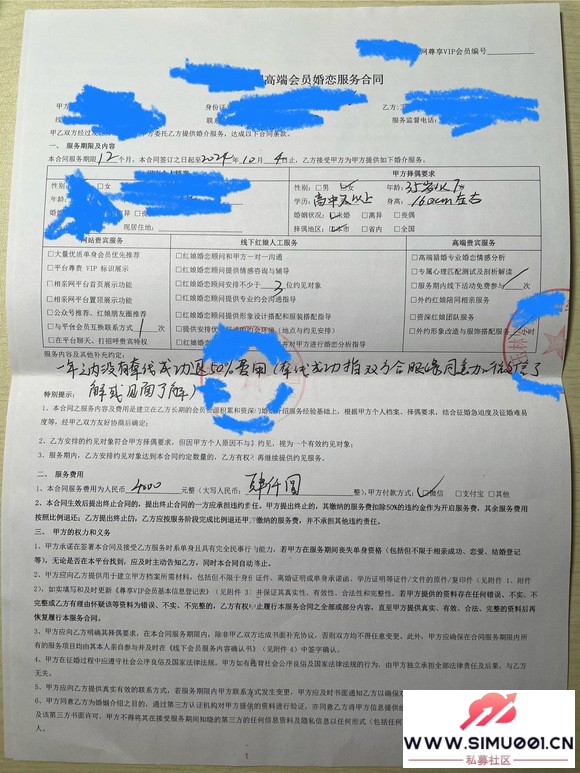 网尊享VIP会员编号
高端会员婚恋服务合同
甲方
身份证
乙方:
联系
服务监督电话:
甲乙双方经过友 方委托乙方提供婚介服务,达成以下合同条款。
一、服务期限及内容
本合同服务期限 12 个月,本合同签订之日起至2024年10月4日止,乙方接受甲方为甲方提供如下婚介服务。
甲方择偶要求
性别: □女
性别:□男 ☑女 年龄:35岁以下
年龄:
学历:高中及以上 身高:160cm左右
婚姻 □丧
婚姻状况:☑未婚 □离异 □丧偶
现居住地:
择偶地区:☑本市 □省内 □全国
网站贵宾服务 线下红娘人工服务 高端贵宾服务
□大量优质单身会员优先推荐 □红娘婚恋顾问和甲方一对一沟通 □高端猎婚专业婚恋情感分析
□平台尊贵 VIP 标识展示 □红娘婚恋顾问提供情感咨询与辅导 □专属心理匹配测试及剖析解读
□相亲网平台首页展示功能 □红娘婚恋顾问安排不少于 3 位约见对象 □服务期内线下活动免费参与 次
□相亲网平台置顶展示功能 □红娘婚恋顾问提供专业的约会沟通指导 □外约红娘陪同相亲服务
□公众号推荐、红娘朋友圈推荐 □红娘婚恋顾问提供形象设计搭配和服装搭配指导 □资深红娘团队服务
□与平台会员互换联系方式 1 次 □提供安排优 (地点与约见安排) □外约形象改造与服饰搭配服务 小时
□在平台聊天、打招呼贵宾特权 □红娘婚恋 并对甲方进行婚恋分析指导
服务内容及其他补充约定:
一年内没有牵线成功退50%费用(牵线成功指双方合眼缘同意加微信了
解或见面了解)
特别提示:
1、本合同之服务内容及费用是建立在乙方长期的会员资源积累和资深 介绍服务经验基础上,根据甲方个人档案、择偶要求,结合征婚急迫度及征婚难易
度等,经甲乙双方友好协商后确定;
2、乙方安排的约见对象符合甲方择偶要求,但因甲方个人原因不与其约见,视为一个有效约见对象;
3、服务期内,乙方安排约见对象达到本合同约定数量的,乙方有权不再继续提供约见服务。
二、服务费用
1、本合同服务费用为人民币 4000 元整(大写人民币: 肆仟圆 整),甲方付款方式:☑微信 □支付宝 □其他
2、本合同生效后提出终止合同的,提出终止合同的一方应承担违约责任。甲方提出终止的,其缴纳的服务费扣除50%的违约金作为开启服务费,其余服务费用
按照比例退还;乙方提出终止的,乙方应按服务阶段完成比例退还甲方缴纳的服务费,并不承担其他违约责任。
三、甲方的权力和义务
1、甲方承诺在签署本合同及接受乙方服务时系单身且具有完全民事行为能力,若甲方在服务期间丧失单身资格(包括但不限于相亲成功、恋爱、结婚登记
等),无论是否在本平台找到,应及时主动告知乙方,同时本合同自动终止。
2、甲方应向乙方提供用于建立甲方档案所需材料,包括但不限于身份证件、离婚证明或单身承诺函、学历证明等证件/文件的原件/复印件(见附件 1、附件
2)、如实填写和及时更新《尊享VIP会员基本信息登记表》(见附件 3)并保证其真实性、有效性、合法性和完整性。若甲方提供的资料存在任何错误、不实、不
完整或乙方有理由怀疑该等资料为错误、不实、不完整的,乙方有权中止履行本服务合同之全部或部分内容,直至甲方提供真实、有效、合法、完整的资料后再
恢复履行本服务合同。
3、甲方应向乙方明确其择偶要求,在本合同服务期限内,除非甲乙双方达成书面补充协议,否则双方均不得任意变更。此外,甲方应确保在合同服务期限内所
有的服务项目均由其本人亲自参与并及时在《线下会员服务内容确认书》(见附件 4)中签字确认。
4、甲方在征婚过程中应遵守社会公序良俗及国家法律法规,甲方如有违背社会公序良俗及国家法律法规的行为,由甲方独立承担全部法律责任及后果,与乙方
无关。
5、甲方应向乙方提供真实有效的联系方式,若服务期限内甲方联系方式发生变更,甲方应及时书面通知乙方以确保
6、甲方同意乙方为婚姻介绍之目的,通过第三方认证机构对甲方提供的资料进行验证,亦同意乙方将甲方信息提供给
及该第三方书面许可,甲方不得将其在接受服务期间知悉的第三方的任何信息及隐私信息以任何形式(包括任何
人。
1
WWW.SIMU001.CN
私募社区